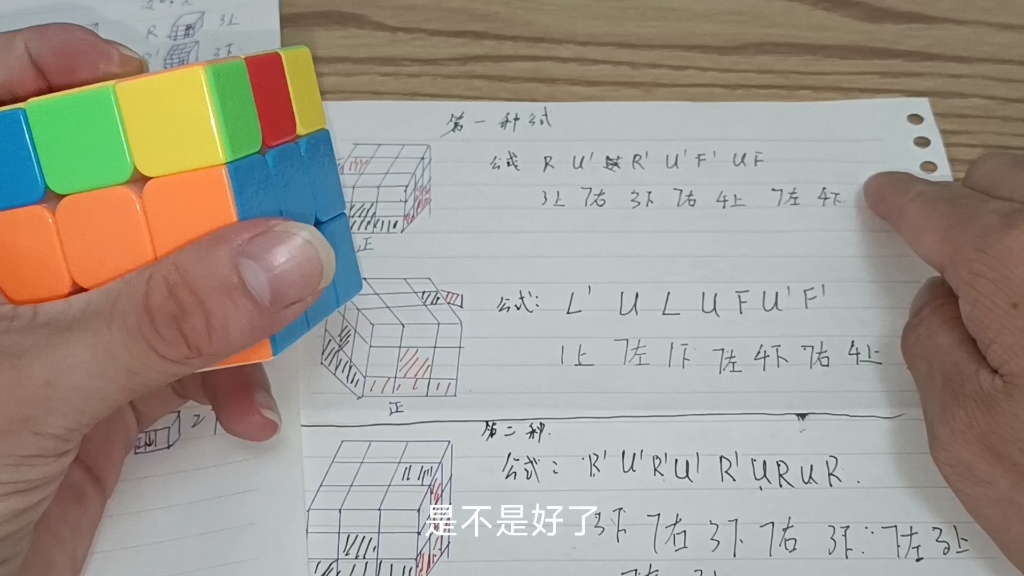 R 3上
3下
第一种式
公式 R U' R' U' F' U F
3上 7右 3下 7右 4上 7左 4下
正
公式: L' U L U F U' F'
1上 7左 1下 7左 4下 7右 4上
正
第二种.
公式: R' U' R' U' R' U R U R.
3下 7右 3下 7右 3下 7左 3上
是不是好了